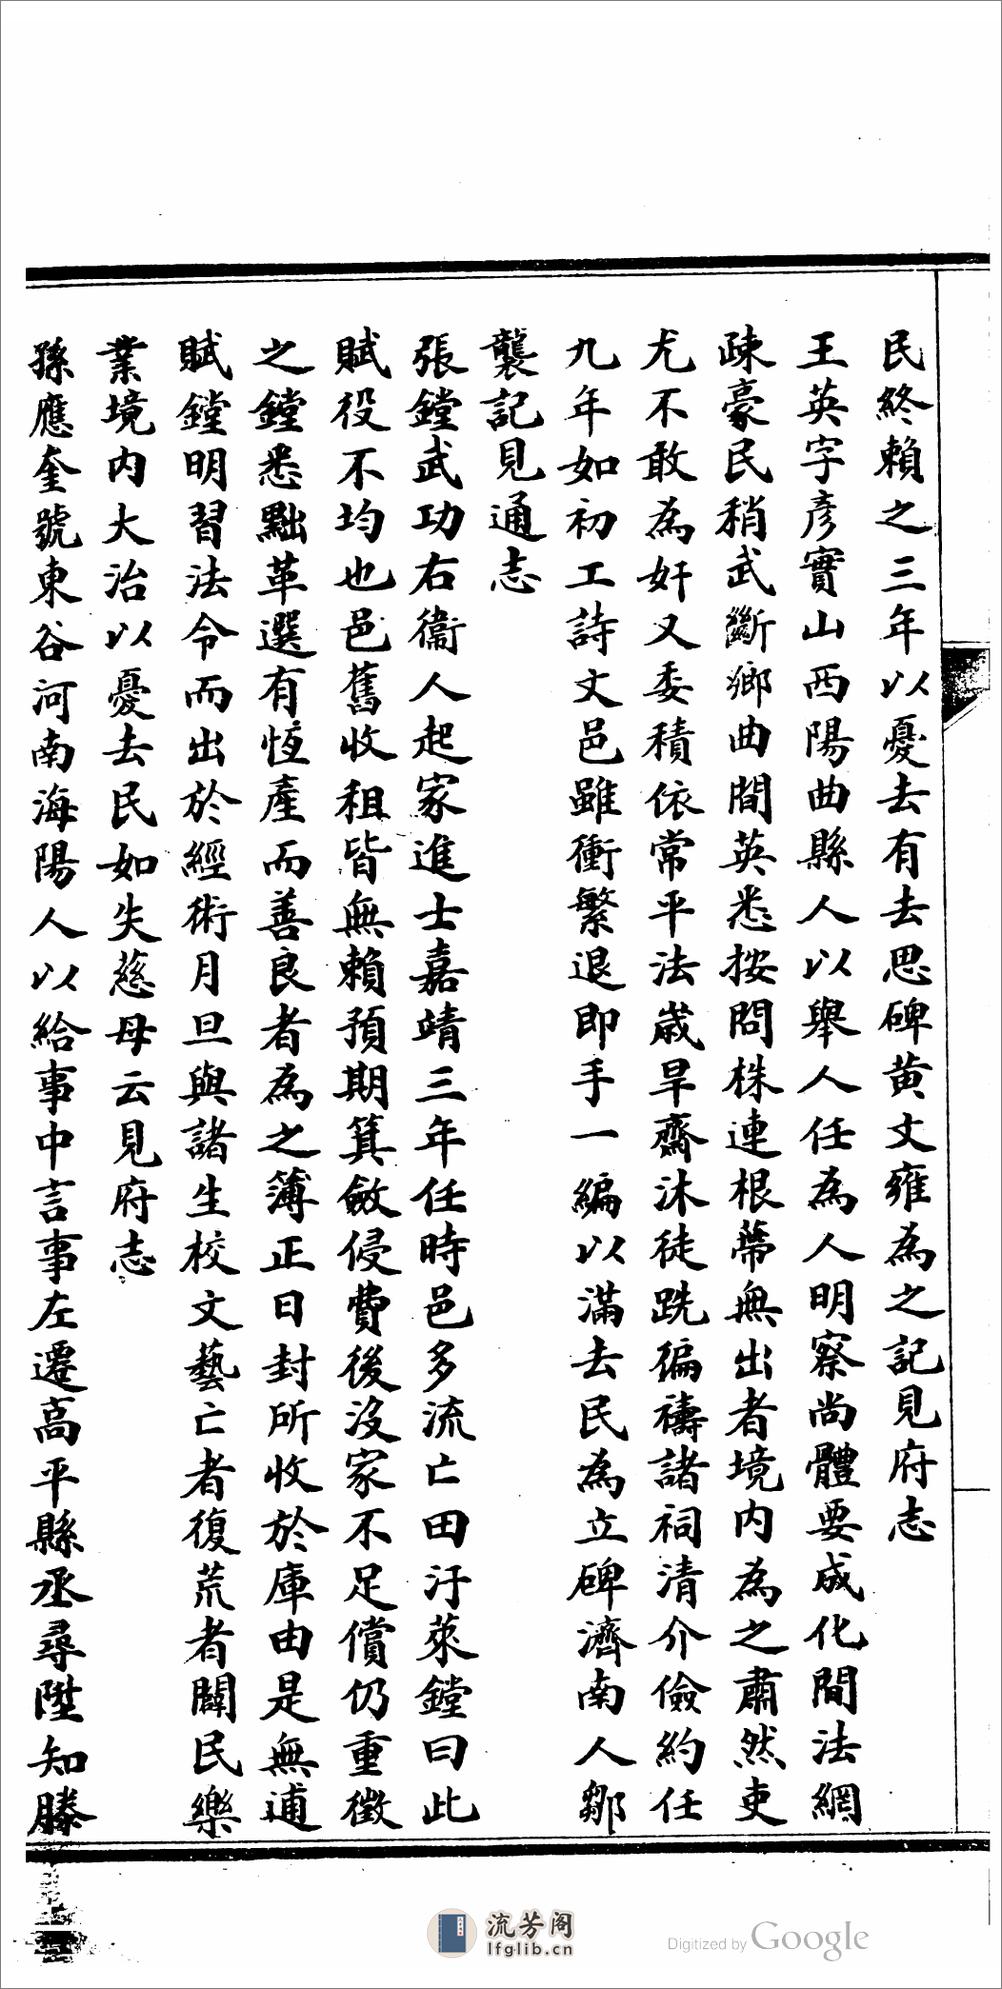 民終賴之三年以憂去有去思碑黄文雍為之記見府志
王英字彥實山西陽曲縣人以舉人任為人明察尚體要成化間法網
疎豪民稍武斷鄉曲間英悉按問株連根蔕無出者境内為之肅然吏
尤不敢為奸又委積依常平法歲旱齋沐徒跣徧禱諸祠清介儉約任
九年如初工詩文邑雖衝繁退即手一編以滿去民為立碑濟南人鄒
襲記見通志
張鏜武功右衞人起家進士嘉靖三年任時邑多流亡田汙萊鏜曰此
賦役不均也邑舊收租皆無賴預期箕斂侵費後沒家不足償仍重徵
之鏜悉黜革選有恆產而善良者為之簿正日封所收於庫由是無逋
賦鏜明習法令而出於經術月旦與諸生校文藝亡者復荒者闢民樂
業境内大治以憂去民如失慈母云見府志
孫應奎號東谷河南海陽人以給事中言事左遷高平縣丞尋陞知滕
流芳阁
lfglib.cn
Digitized by Google